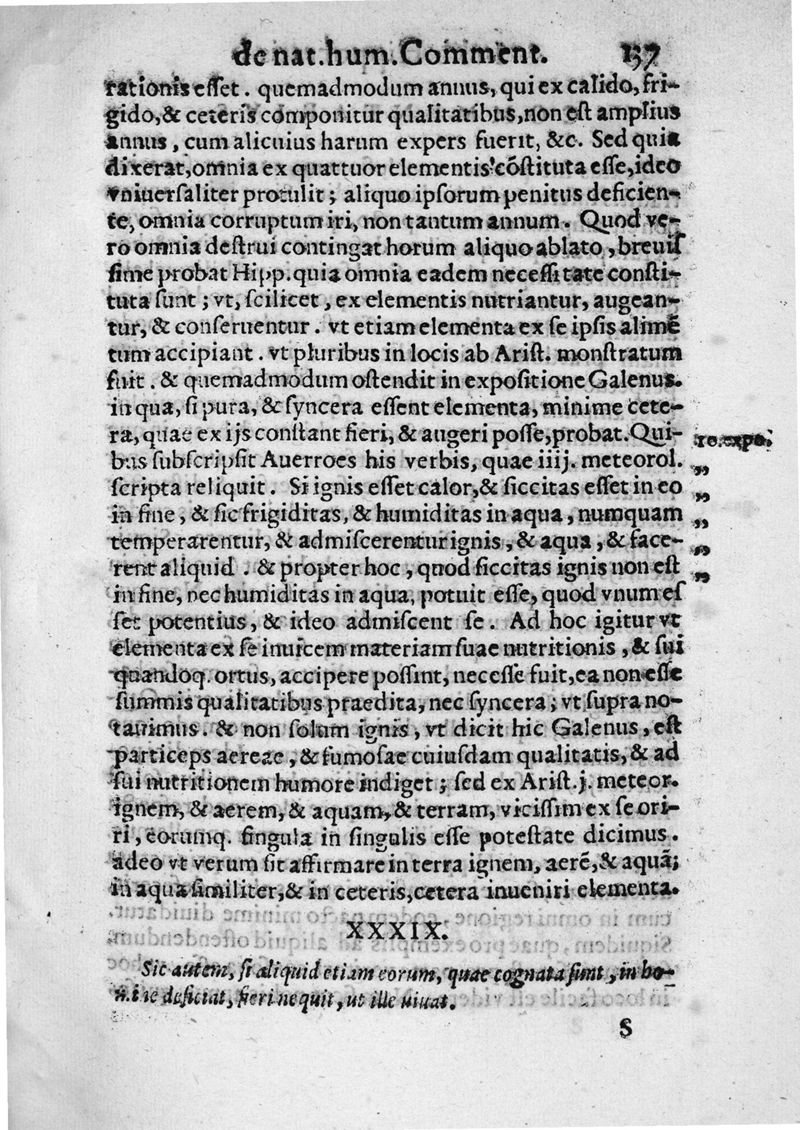 de nat.hum.Comment. 137
rationis eſſet. quemadmodum annus, qui ex calido, fri-
gido, & ceteris componitur qualitatibus, non eſt amplius
annus, cum alicuius harum expers fuerit, &c. Sed quia
dixerat, omnia ex quattuor elementis cōſtituta eſſe, ideo
vniuerſaliter protulit; aliquo ipſorum penitus deficien-
te, omnia corruptum iri, non tantum annum. Quod ve-
ro omnia deſtrui contingat horum aliquo ablato, breuiſ
ſime probat Hipp. quia omnia eadem neceſſitate conſti-
tuta ſunt; vt, ſcilicet, ex elementis nutriantur, augean-
tur, & conſeruentur. vt etiam elementa ex ſe ipſis alimē
tum accipiant. vt pluribus in locis ab Ariſt. monſtratum
fuit. & quemadmodum oſtendit in expoſitione Galenus.
in qua, ſi pura, & ſyncera eſſent elementa, minime cete-
ra, quae ex ijs conſtant fieri, & augeri poſſe, probat. Qui-
10. expo.
bus ſubſcripſit Auerroes his verbis, quae iiij. meteorol. „
ſcripta reliquit. Si ignis eſſet calor, & ſiccitas eſſet in eo „
in fine, & ſic frigiditas, & humiditas in aqua, numquam „
temperarentur, & admiſcerentur ignis, & aqua, & face- „
rent aliquid. & propter hoc, quod ſiccitas ignis non eſt „
in fine, nec humiditas in aqua, potuit eſſe, quod vnum eſ
ſet potentius, & ideo admiſcent ſe. Ad hoc igitur vt
elementa ex ſe inuicem materiam ſuae nutritionis, & ſui
quandoq. ortus, accipere poſſint, neceſſe fuit, ea non eſſe
ſummis qualitatibus praedita, nec ſyncera; vt ſupra no-
tauimus. & non ſolum ignis, vt dicit hic Galenus, eſt
particeps aereae, & fumoſae cuiuſdam qualitatis, & ad
ſui nutritionem humore indiget; ſed ex Ariſt. j. meteor.
ignem, & aerem, & aquam, & terram, viciſſim ex ſe ori-
ri, eorumq. ſingula in ſingulis eſſe poteſtate dicimus.
adeo vt verum ſit affirmare in terra ignem, aerē, & aquā;
in aqua ſimiliter, & in ceteris, cetera inueniri elementa.
XXXIX.
Sic autem, ſi aliquid etiam eorum, quae cognata ſunt, in ho-
deficiat, fieri nequit, ut ille uiuat.
S